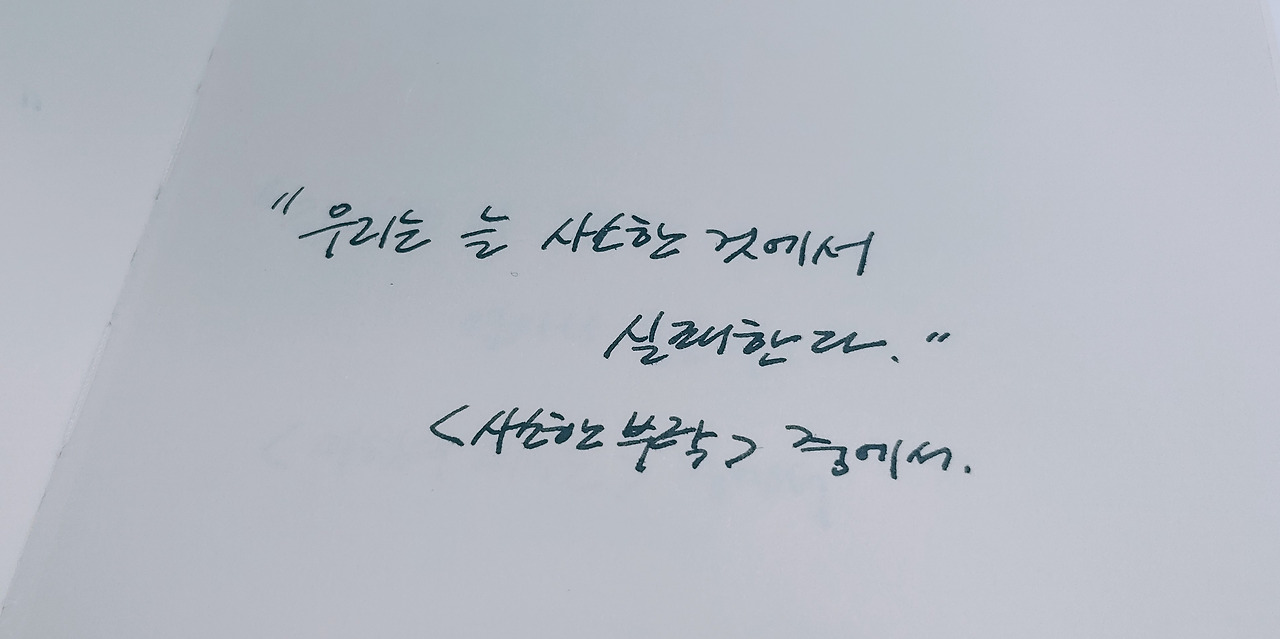 "우리는 늘 사소한 것에서
실패한다."
<사소한 부탁> 중에서.